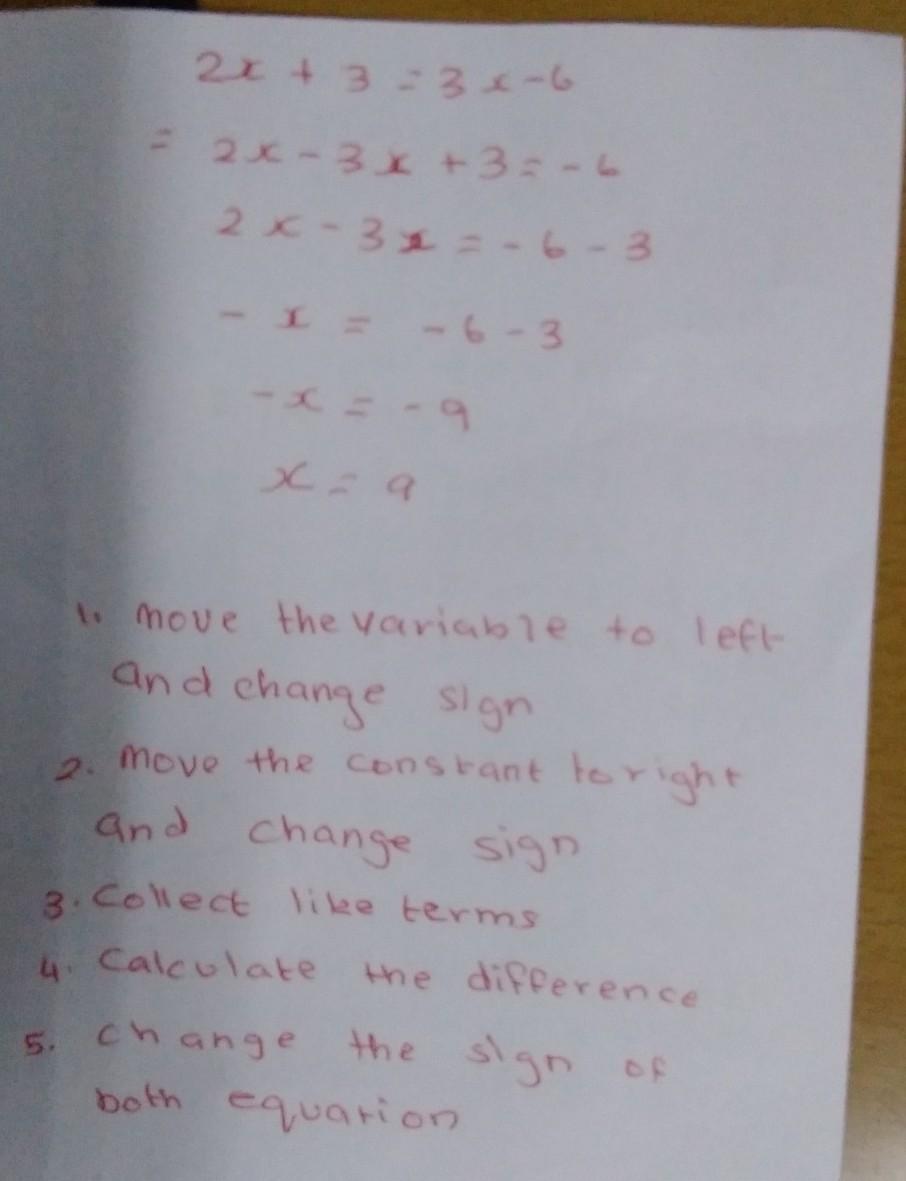 2x + 3 = 3x - 6
= 2x - 3x + 3 = - 6
2x - 3x = - 6 - 3
- x = - 6 - 3
- x = - 9
x = 9
1. move the variable to left
and change sign
2. move the constant to right
and change sign
3. Collect like terms
4. Calculate the difference
5. change the sign of
both equarion